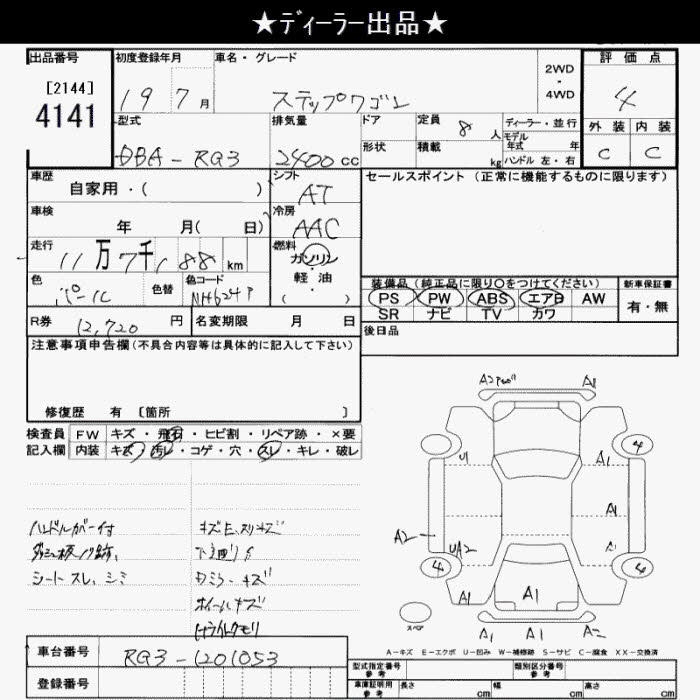 ★ディーラー出品★
出品番号
[2144]
4141
初度登録年月
19 7月
車名・グレード
ステップワゴン
2WD
・
4WD
評価点
4
外装 内装
C C
型式
DBA-RG3
排気量
2400cc
ドア
形状
定員 8人
積載 kg
ディーラー・並行
モデル
年式 年
ハンドル 左・右
車歴
自家用・( )
シフト
AT
セールスポイント (正常に機能するものに限ります)
車検
年 月( 日)
冷房
AAC
走行
11万7千188km
燃料
ガソリン
軽・油
( )
色
パール
色替
色コード
NH624P
装備品(純正品に限り〇をつけてください)
PS PW ABS エアB AW
SR ナビ TV カワ
新車保証書
有・無
R券
12,720円
名変期限 月 日
後日品
注意事項申告欄(不具合内容等は具体的に記入して下さい)
修復歴 有 [箇所 ]
検査員
記入欄
FW キズ・飛石・ヒビ割・リペア跡・×要
内装 キズ・汚レ・コゲ・穴・スレ・キレ・破レ
ハンドルカバー付
シートスレ、シミ
キズE、スリキズ
下廻りサ
Dミラーキズ
ホイールキズ
ヘッドライトクモリ
A2 A1
U1 A1 4
A2 UA2 A1
4 A1 4
A1 A1 A1 A1
スペア
A1 A1 A2
A-キズ E-エクボ U-凹み W-補修跡 S-サビ C-腐食 XX-交換済
車台番号
RG3-1201053
登録番号
型式指定番号
参考
類別区分番号
参考
車庫証明用
参考
長さ cm
幅 cm
高さ cm